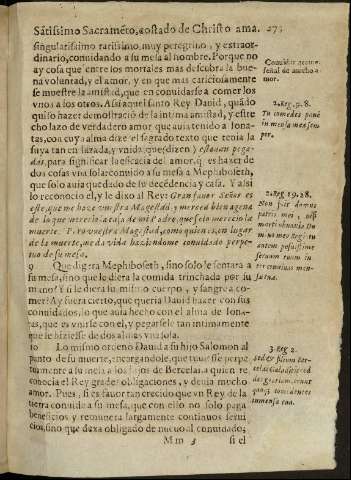 Sātissimo Sacramēto, costado de Christo ama. 273
singularissimo rarissimo, muy peregrino, y extraor-
dinario, conuidando a su mesa al hombre. Porque no
ay cosa que entre los mortales mas descubra la bue-
na voluntad, y el amor, y en que mas cariciosamente
se muestre la amistad, que en conuidarse a comer los
vnos a los otros. Assi aquel santo Rey Dauid, quādo
quiso hazer demostraciō de la intima amistad, y estre
cho lazo de verdadero amor que auia tenido a Iona-
tas, con cuya alma dize el sagrado texto que tenia la
suya tan en lazada, y vnida (que dizen) estauan pega-
das, para significar la eficacia del amor, q̄ es hazer de
dos cosas vna solo: conuido a su mesa a Mephiboseth,
que solo auia quedado de su decēdencia y casa. Y assi
lo reconocio el, y le dixo al Rey: Gran fauor Señor es
este, que me haze vuestra Magestad, y merced bien agena
de lo que merecia la casa de mi Padre, que solo merecio la
muerte. Pero vuestra Magestad, como quien es, en lugar
de la muerte, me da vida haziendome conuidado perpe-
tuo de su mesa.
9 Que digera Mephiboseth, si no solo le sentara a
su mesa, sino que le diera la comida trinchada por su
mano? Y si le diera su mismo cuerpo, y sangre a co-
mer? Ay fuera cierto, que queria Dauid hazer con sus
conuidados, lo que auia hecho con el alma de Iona-
tas, que es vnirse con el, y pegarsele tan intimamente
que se hiziesse de dos almas vna sola.
10 Lo mismo ordenò Dauid a su hijo Salomon al
punto de su muerte, encargandole, que tuuiesse perpe-
tuamente a su mesa a los hijos de Bercelai, a quien re-
conocia el Rey grādes obligaciones, y deuia mucho
amor. Pues, si es fauor tan crecido que vn Rey de la
tierra conuide a su mesa, que con ello no solo paga
beneficios y remunera largamente continuos serui-
cios, sino que dexa obligado de nueuo al conuidado,
Mm 3 si el
Conuidar a comer
señal de mucho a-
mor.
2. Reg. 9. 8.
Tu comedes panē
in mensa mea sem
per.
2. Reg. 19. 28.
Non fuit domus
patris mei, nisi
morti obnoxia Do
mino meo Regi: tu
autem posuisti me
seruum tuum in
ter conuiuas men-
sæ tuæ.
3. Reg. 2.
Sed & filiis Ber-
celai Galaaditis red
des gratiam, erunt
que comedentes
in mensa tua.